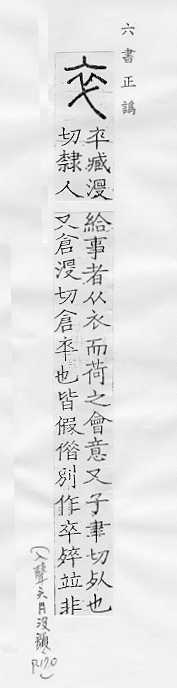 六書正譌
卒臧沒
切隸人
給事者从衣而荷之會意又子聿切歾也
又倉沒切倉卒也皆假借別作卒竝非
(入聲六月沒韻 p.170)